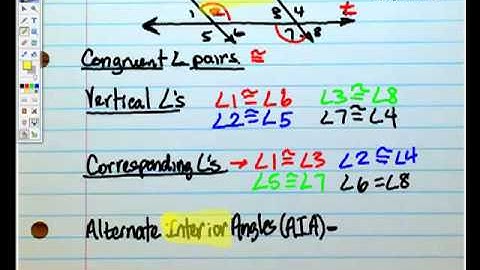 1 2 3 4 t
5 6 7 8
Congruent ∠ pairs ≅
Vertical ∠'s ∠1≅∠6 ∠3≅∠8
∠2≅∠5 ∠7≅∠4
Corresponding ∠'s → ∠1≅∠3 ∠2≅∠4
∠5≅∠7 ∠6=∠8
Alternate Interior Angles (AIA) -